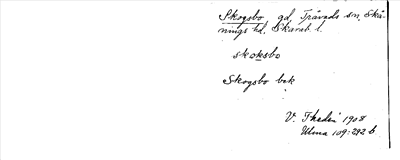 Skogsbo gd, Trävads sn, Skå-
nings hd. Skarab. l.
skoksbo
Skogsbo bek
V. Ekedin 1908
Ulma 109:292 b